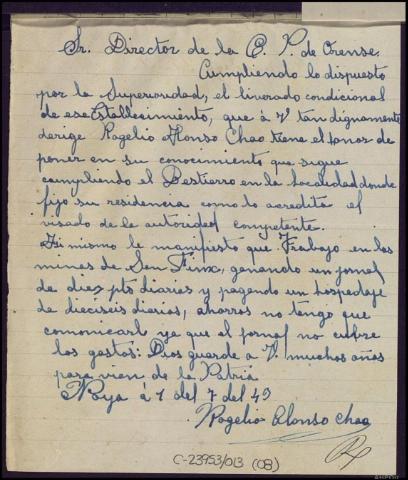 Sr. Director de la C. P. de Orense.
Cumpliendo lo dispuesto
por la Superioridad, el liverado condicional
de ese Establecimiento, que a Vd tan dignamente
derige Rogelio Alonso Chao tiene el honor de
poner en su conocimiento que sigue
cumpliendo el Destierro en la localidad donde
fijo su residencia como lo acredita el
visado de la autoridad competente.
Asi mismo le manifiesto que Trabajo en las
minas de San Finx, ganando un jornal
de diez pts diaries y pagando un hospedaje
de dieciseis diarios, ahorros no tengo que
comonicarle ya que el jornal no cubre
los gastos: Dios guarde a V. muchos años
para vien de la Patria
Noya á 1 del 7 del 43
Rogelio Alonso Chao
C-23953/013 (08)